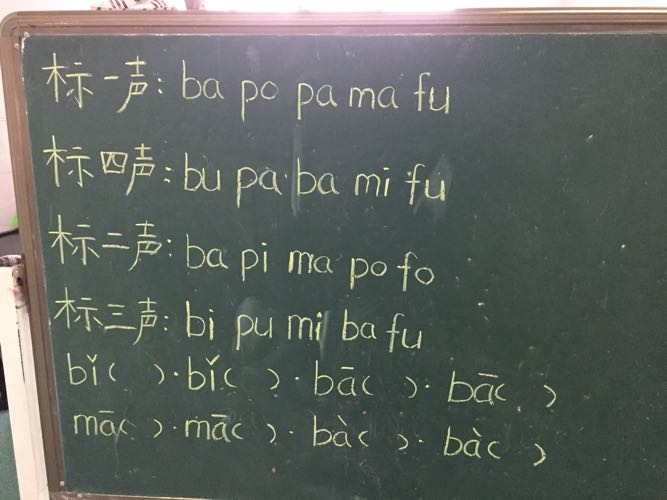 标一声: ba po pa ma fu
标四声: bu pa ba mi fu
标二声: ba pi ma po fo
标三声: bi pu mi ba fu
bǐ( )·bǐ( )·bā( )·bā( )
mā( )·mā( )·bà( )·bà( )